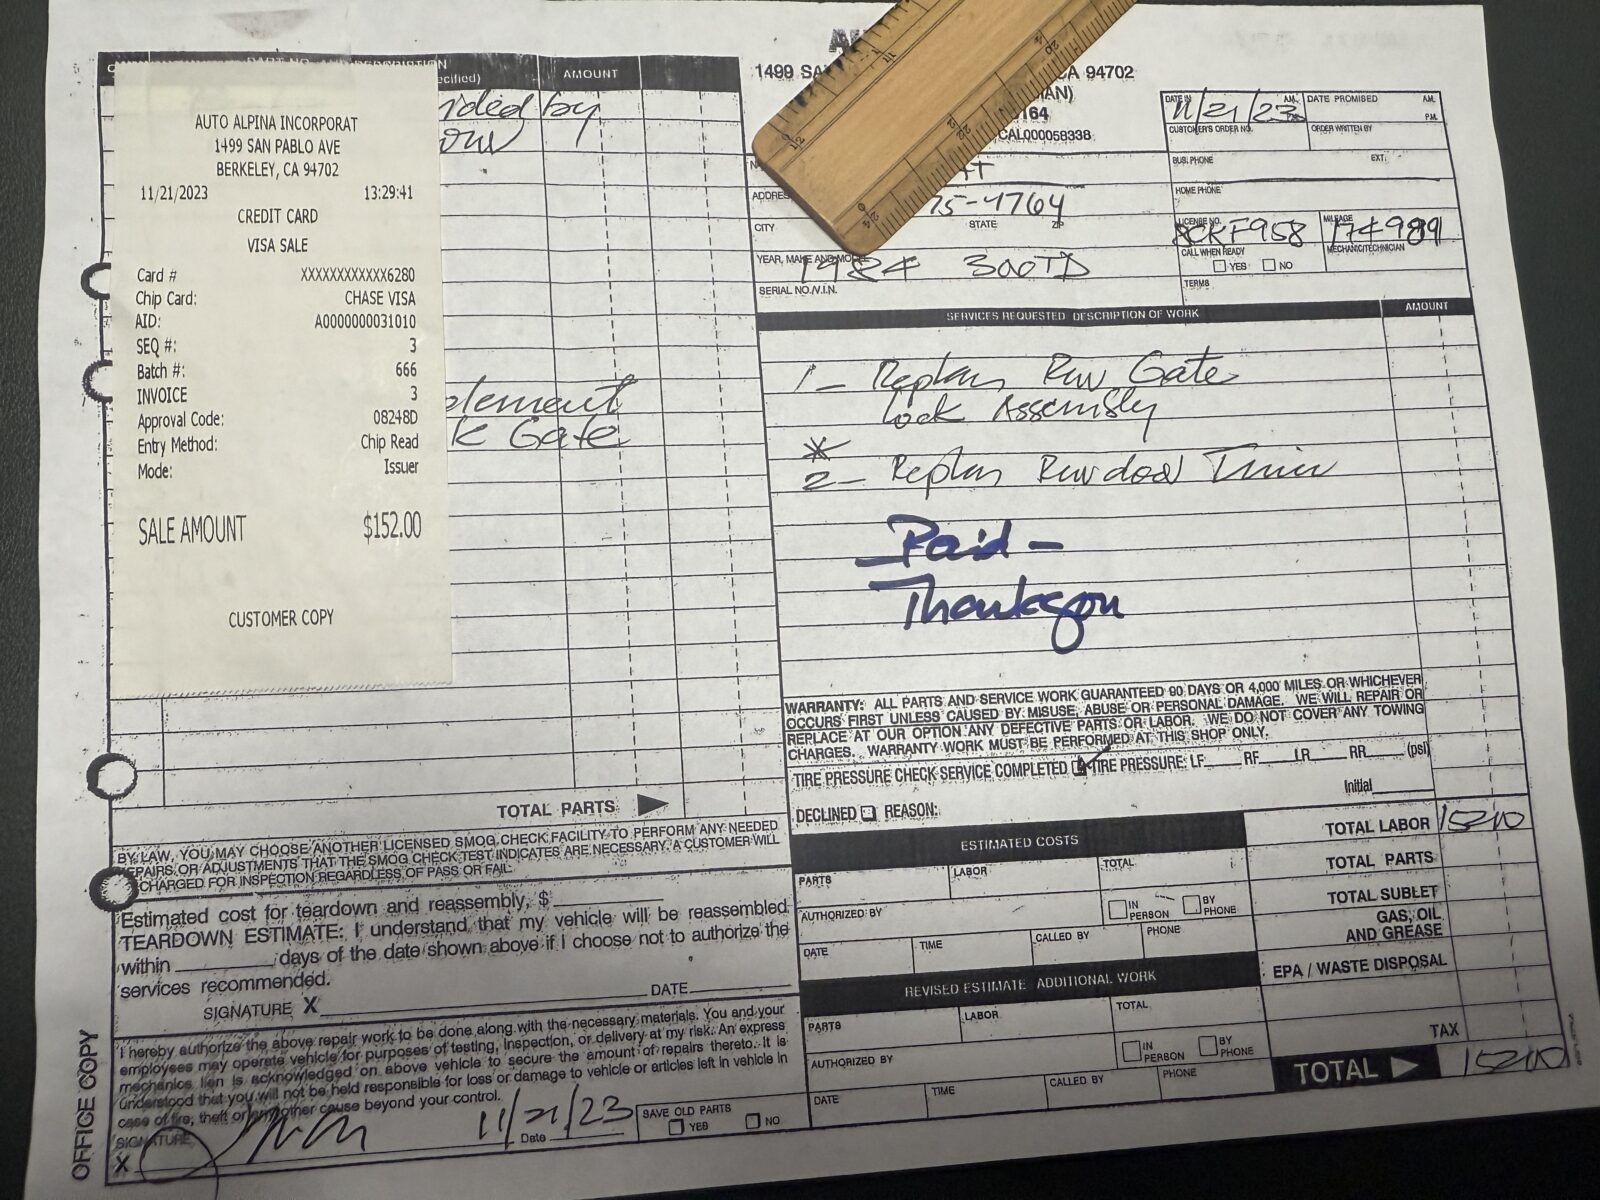 PART NO. AND DESCRIPTION
ecified)
AMOUNT
ided by
ow
element
k Gate
AUTO ALPINA INCORPORAT
1499 SAN PABLO AVE
BERKELEY, CA 94702
11/21/2023 13:29:41
CREDIT CARD
VISA SALE
Card # XXXXXXXXXXXX6280
Chip Card: CHASE VISA
AID: A0000000031010
SEQ #: 3
Batch #: 666
INVOICE 3
Approval Code: 08248D
Entry Method: Chip Read
Mode: Issuer
SALE AMOUNT $152.00
CUSTOMER COPY
TOTAL PARTS
BY LAW, YOU MAY CHOOSE ANOTHER LICENSED SMOG CHECK FACILITY TO PERFORM ANY NEEDED
EPAIRS OR ADJUSTMENTS THAT THE SMOG CHECK TEST INDICATES ARE NECESSARY. A CUSTOMER WILL
CHARGED FOR INSPECTION REGARDLESS OF PASS OR FAIL.
Estimated cost for teardown and reassembly, $
TEARDOWN ESTIMATE: I understand that my vehicle will be reassembled
within days of the date shown above if I choose not to authorize the
services recommended.
SIGNATURE X DATE
I hereby authorize the above repair work to be done along with the necessary materials. You and your
employees may operate vehicle for purposes of testing, inspection, or delivery at my risk. An express
mechanics lien is acknowledged on above vehicle to secure the amount of repairs thereto. It is
understood that you will not be held responsible for loss or damage to vehicle or articles left in vehicle in
case of fire, theft or any other cause beyond your control.
SIGNATURE
X 11/21/23
Date
SAVE OLD PARTS
YES NO
OFFICE COPY
1499 SA CA 94702
AN)
164
CAL000058338
DATE IN 11/21/23 A.M.
DATE PROMISED A.M.
P.M.
CUSTOMER'S ORDER NO.
ORDER WRITTEN BY
BUS. PHONE EXT.
HOME PHONE
ADDRES
75-4764
CITY STATE ZIP
LICENSE NO. 8CKF958
MILEAGE 174989
YEAR, MAKE AND MODEL
1984 300TD
CALL WHEN READY
YES NO
MECHANIC/TECHNICIAN
SERIAL NO./V.I.N.
TERMS
SERVICES REQUESTED DESCRIPTION OF WORK AMOUNT
1- Gate
Lock Assembly
*
2-
-Paid-
WARRANTY: ALL PARTS AND SERVICE WORK GUARANTEED 90 DAYS OR 4,000 MILES OR WHICHEVER
OCCURS FIRST UNLESS CAUSED BY MISUSE, ABUSE OR PERSONAL DAMAGE. WE WILL REPAIR OR
REPLACE AT OUR OPTION ANY DEFECTIVE PARTS OR LABOR. WE DO NOT COVER ANY TOWING
CHARGES. WARRANTY WORK MUST BE PERFORMED AT THIS SHOP ONLY.
TIRE PRESSURE CHECK SERVICE COMPLETED TIRE PRESSURE: LF RF LR RR (psi)
Initial
DECLINED REASON:
ESTIMATED COSTS
PARTS LABOR TOTAL
AUTHORIZED BY IN PERSON BY PHONE
DATE TIME CALLED BY PHONE
REVISED ESTIMATE ADDITIONAL WORK
PARTS LABOR TOTAL
AUTHORIZED BY IN PERSON BY PHONE
DATE TIME CALLED BY PHONE
TOTAL LABOR 152 00
TOTAL PARTS
TOTAL SUBLET
GAS, OIL
AND GREASE
EPA / WASTE DISPOSAL
TAX
TOTAL 152 00